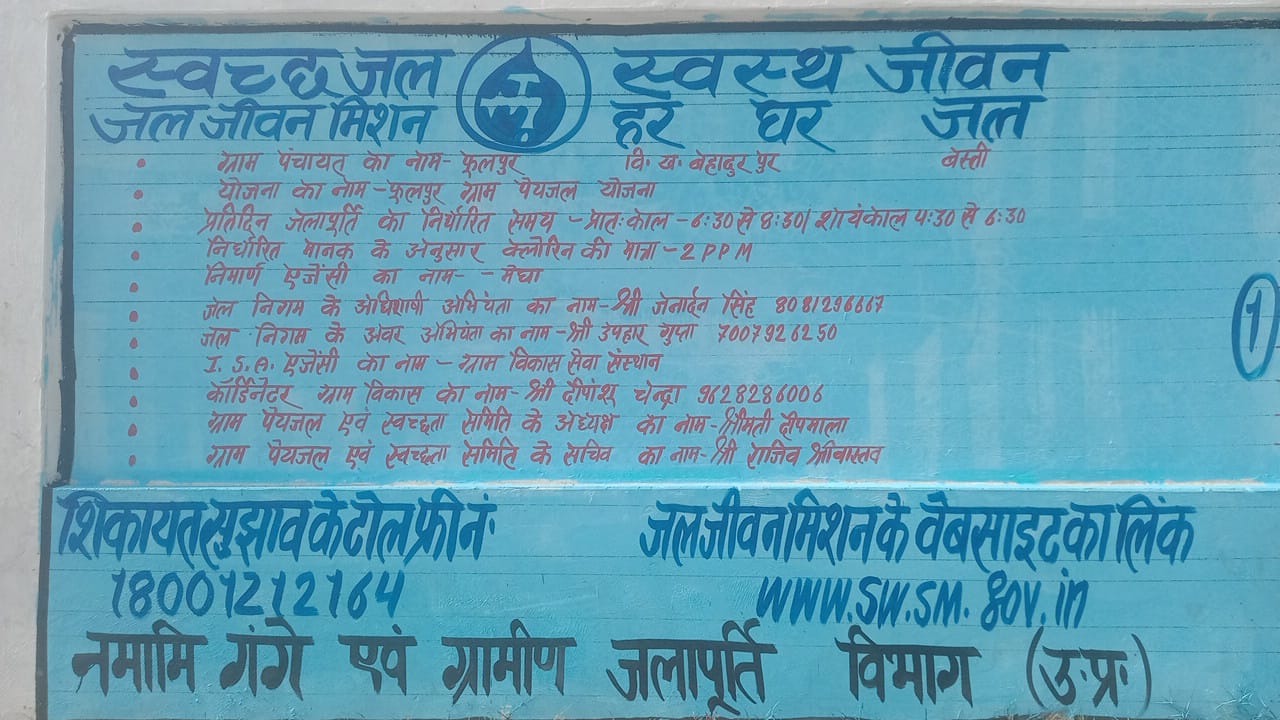 स्वच्छ जल स्वस्थ जीवन
जल जीवन मिशन हर घर जल
ग्राम पंचायत का नाम- फूलपुर वि. ख. बहादुर पुर बस्ती
योजना का नाम - फूलपुर ग्राम पेयजल योजना
प्रतिदिन जलापूर्ति का निर्धारित समय - प्रातः काल - 6:30 से 8:30/ शायंकाल 4:30 से 6:30
निर्धारित मानक के अनुसार क्लोरिन की मात्रा - 2 PPM
निमार्ण एजेंसी का नाम- - मेघा
जल निगम के अधिशाषी अभियंता का नाम- श्री जनार्दन सिंह 8081296667
जल निगम के अवर अभियंता का नाम - श्री उपहार गुप्ता 7007926250
I. S.A. एजेंसी का नाम - ग्राम विकास सेवा संस्थान
कॉर्डिनेटर ग्राम विकास का नाम- श्री दीपांशू चन्द्रा 9628286006
ग्राम पेयजल एवं स्वच्छता समिति के अध्यक्ष का नाम- श्रीमती दीपमाला
ग्राम पेयजल एवं स्वच्छता समिति के सचिव का नाम- श्री राजिव श्रीवास्तव
1
शिकायत सुझाव के टोल फ्री नं.
18001212164
जल जीवन मिशन के वेबसाइट का लिंक
www.sw.sm.gov.in
नमामि गंगे एवं ग्रामीण जलापूर्ति विभाग (उ.प्र.)